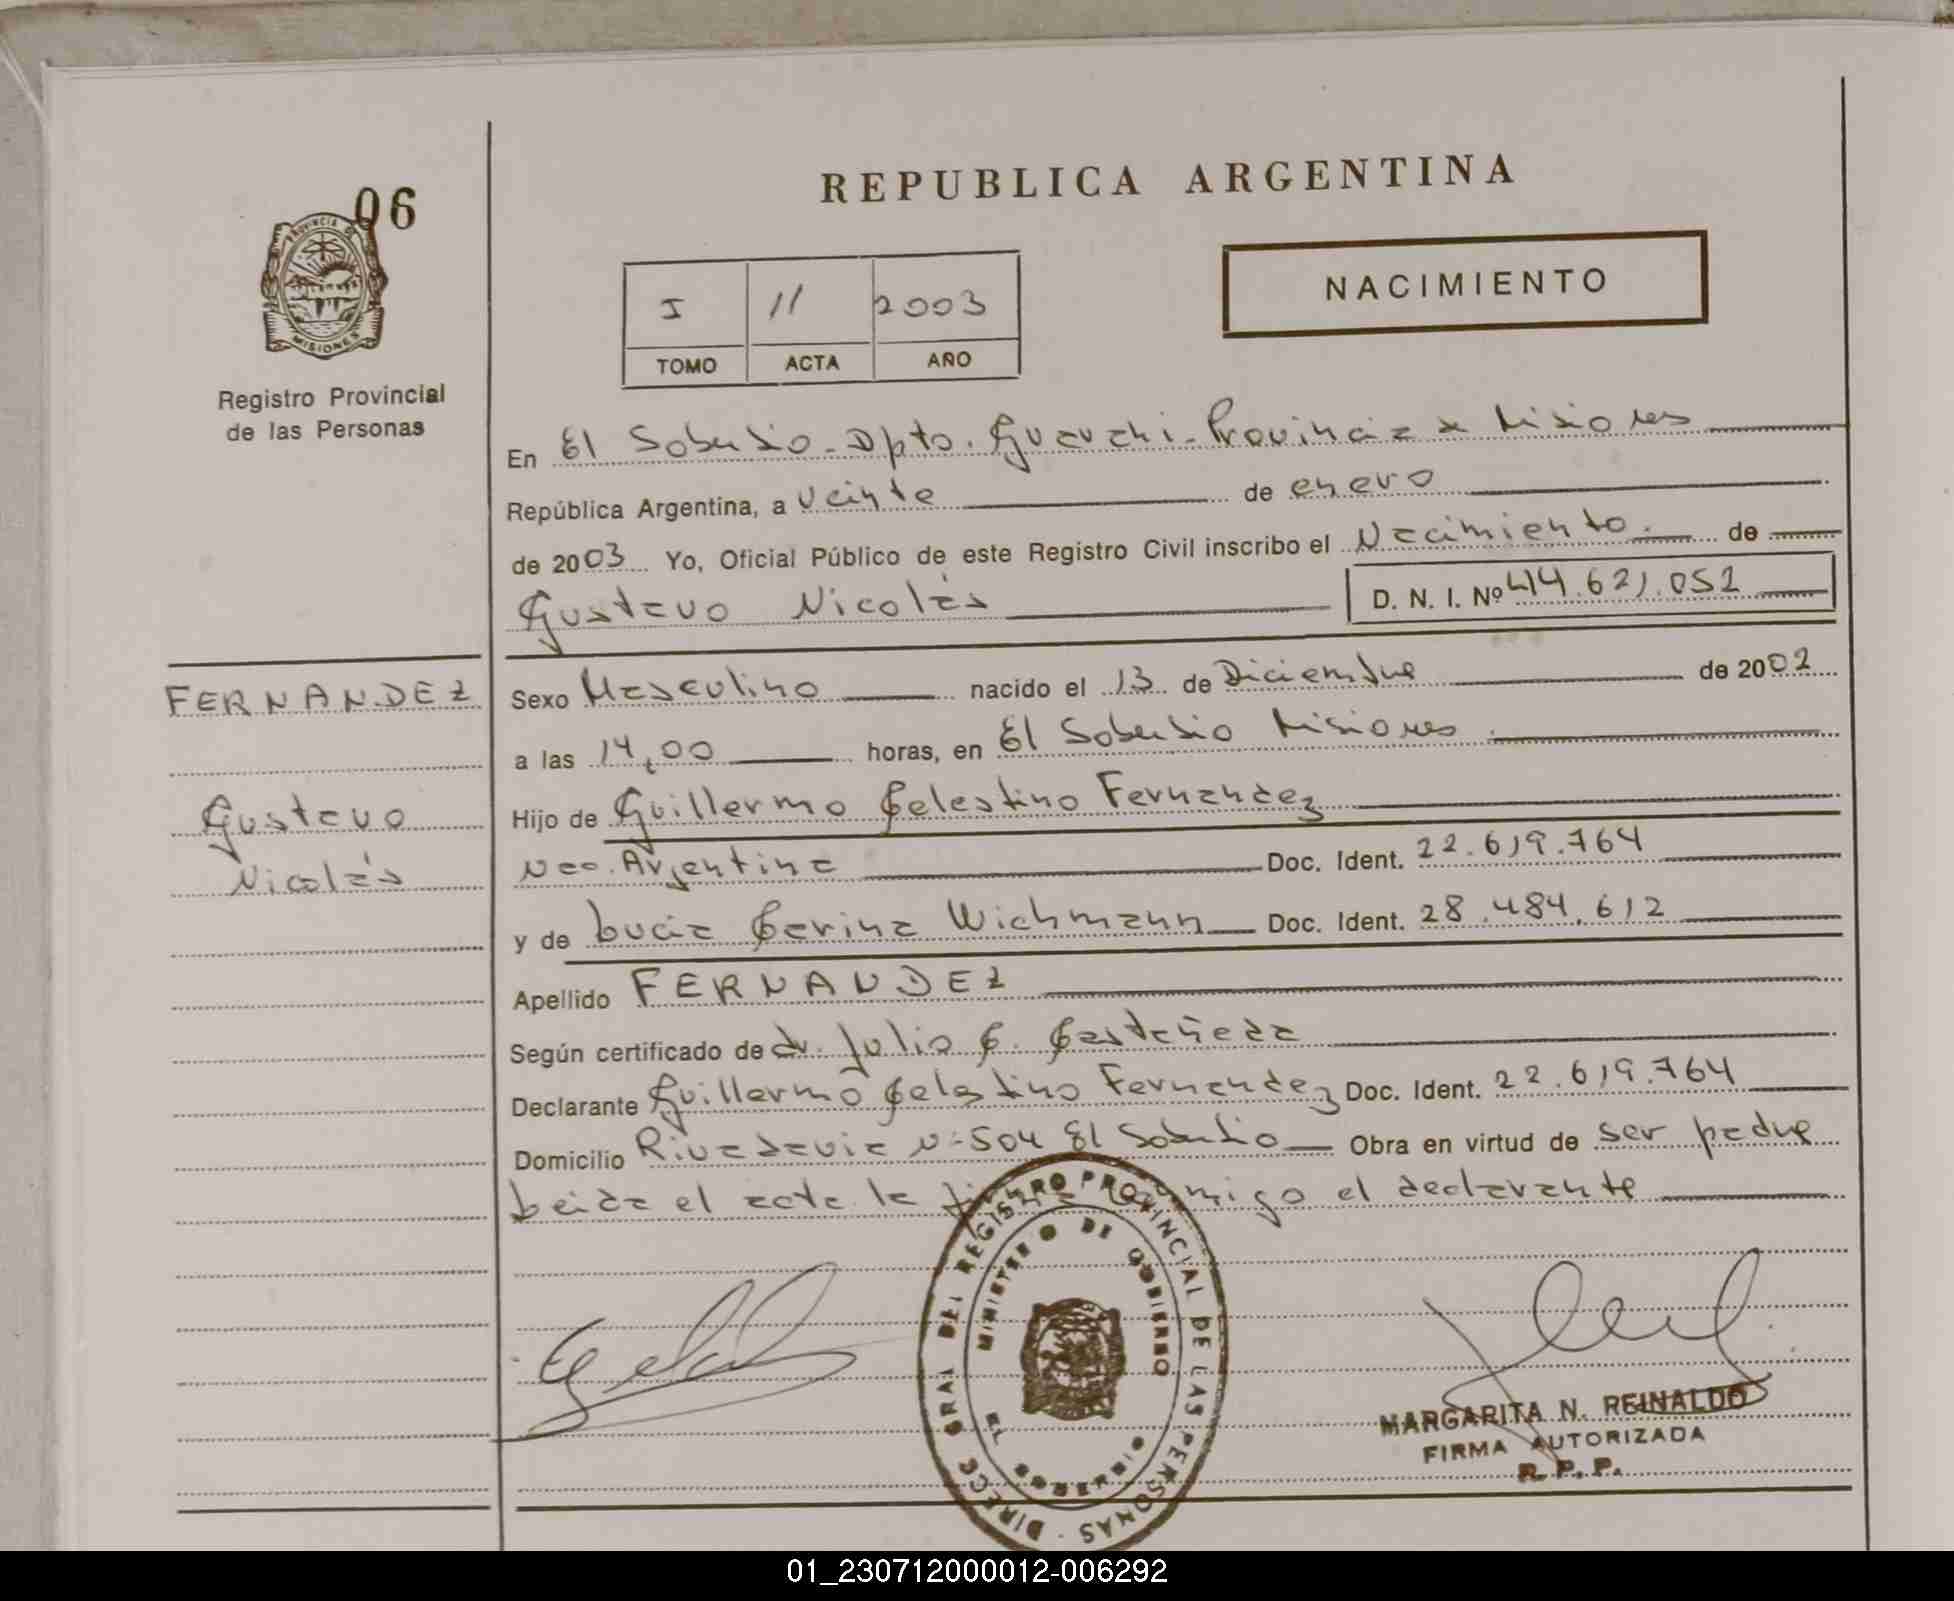 06
PROVINCIA DE
MISIONES
Registro Provincial
de las Personas
REPUBLICA ARGENTINA
I 11 2003
TOMO ACTA AÑO
NACIMIENTO
En El Soberbio - Dpto. Guaraní - Provincia de Misiones
República Argentina, a veinte de enero
de 2003 Yo, Oficial Público de este Registro Civil inscribo el Nacimiento. de
Gustavo Nicolás D. N. I. Nº 44.621.052
FERNANDEZ
Gustavo
Nicolás
Sexo Masculino nacido el 13 de Diciembre de 2002
a las 14,00 horas, en El Soberbio Misiones
Hijo de Guillermo Celestino Fernandez
Nac. Argentina Doc. Ident. 22.619.764
y de Lucia Carina Wichmann Doc. Ident. 28.484.612
Apellido FERNANDEZ
Según certificado de dr. Julio C. Castañeda
Declarante Guillermo Celestino Fernandez Doc. Ident. 22.619.764
Domicilio Rivadavia Nº 504 El Soberbio Obra en virtud de ser padre
Leida el acta la firma conmigo el declarante
DIRECC GRAL DEL REGISTRO PROVINCIAL DE LAS PERSONAS
MINISTERIO DE GOBIERNO
EL SOBERBIO
MARGARITA N. REINALDO
FIRMA AUTORIZADA
R. P. P.
01_230712000012-006292